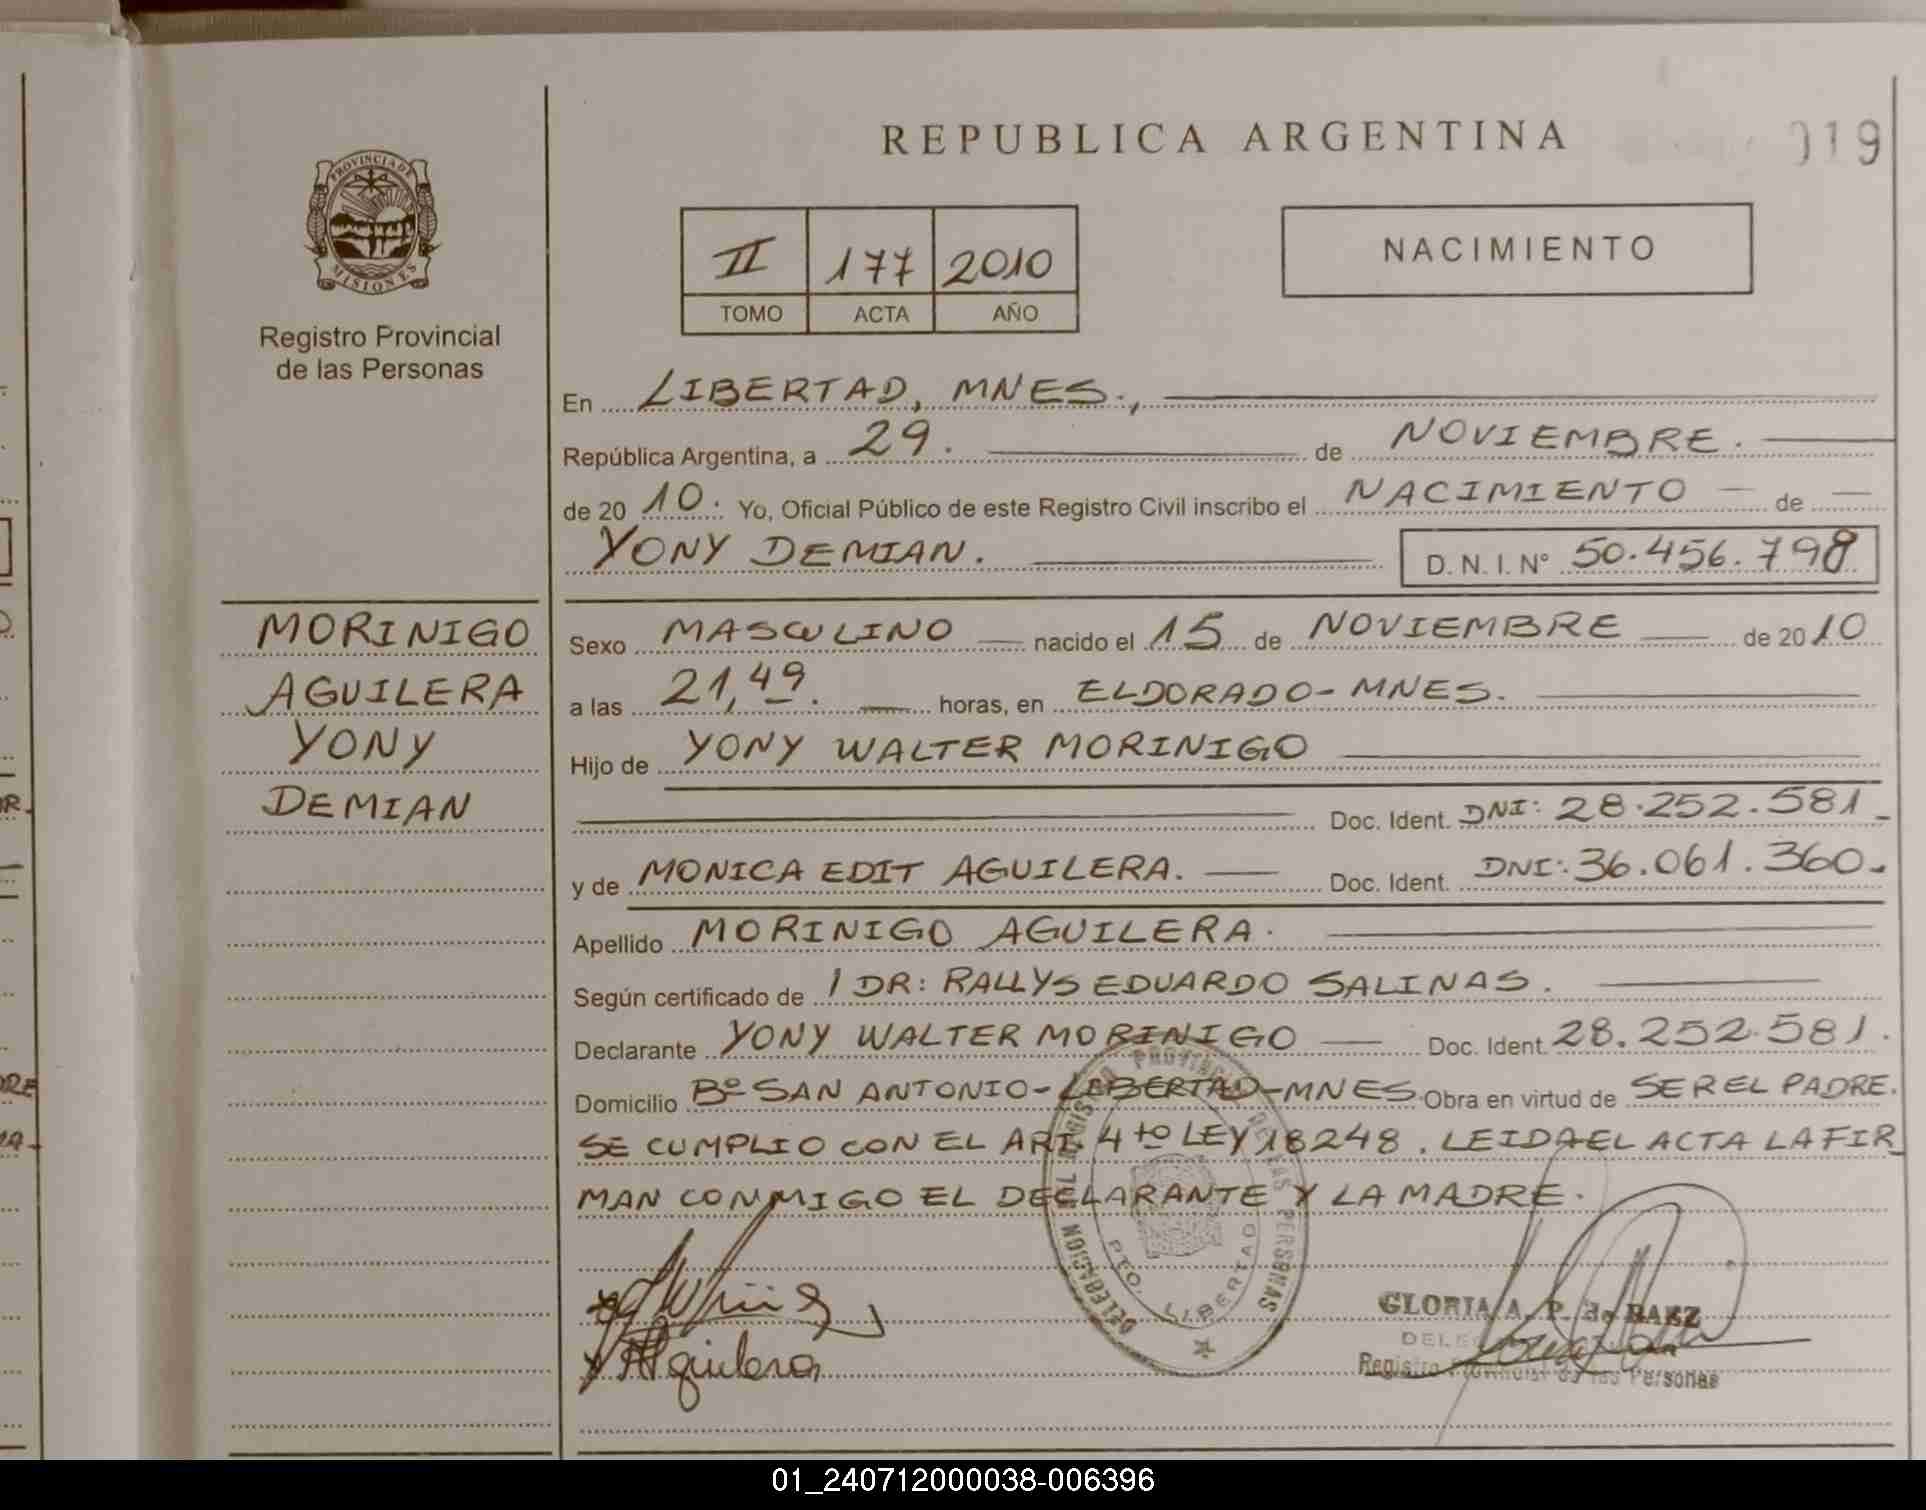 REPUBLICA ARGENTINA
019
PROVINCIA DE
MISIONES
Registro Provincial
de las Personas
II 177 2010
TOMO ACTA AÑO
NACIMIENTO
En LIBERTAD, MNES.,
República Argentina, a 29. de NOVIEMBRE.
de 20 10. Yo, Oficial Público de este Registro Civil inscribo el NACIMIENTO — de —
YONY DEMIAN. D. N. I. Nº 50.456.798
MORINIGO
AGUILERA
YONY
DEMIAN
Sexo MASCULINO — nacido el 15 de NOVIEMBRE — de 20 10
a las 21,49. — horas, en ELDORADO-MNES.
Hijo de YONY WALTER MORINIGO
Doc. Ident. DNI: 28.252.581_
y de MONICA EDIT AGUILERA. — Doc. Ident. DNI: 36.061.360.-
Apellido MORINIGO AGUILERA.
Según certificado de / DR: RALLYS EDUARDO SALINAS.
Declarante YONY WALTER MORINIGO — Doc. Ident. 28.252.581.
Domicilio Bº SAN ANTONIO-LIBERTAD-MNES. Obra en virtud de SER EL PADRE.
SE CUMPLIO CON EL ART. 4to LEY 18248. LEIDA EL ACTA LA FIR_
MAN CONMIGO EL DECLARANTE Y LA MADRE.
DELEGACION DEL REGISTRO PROVINCIAL DE LAS PERSONAS
PTO. LIBERTAD
Aguilera
GLORIA A. P. de BAEZ
Registro Provincial de las Personas
01_240712000038-006396